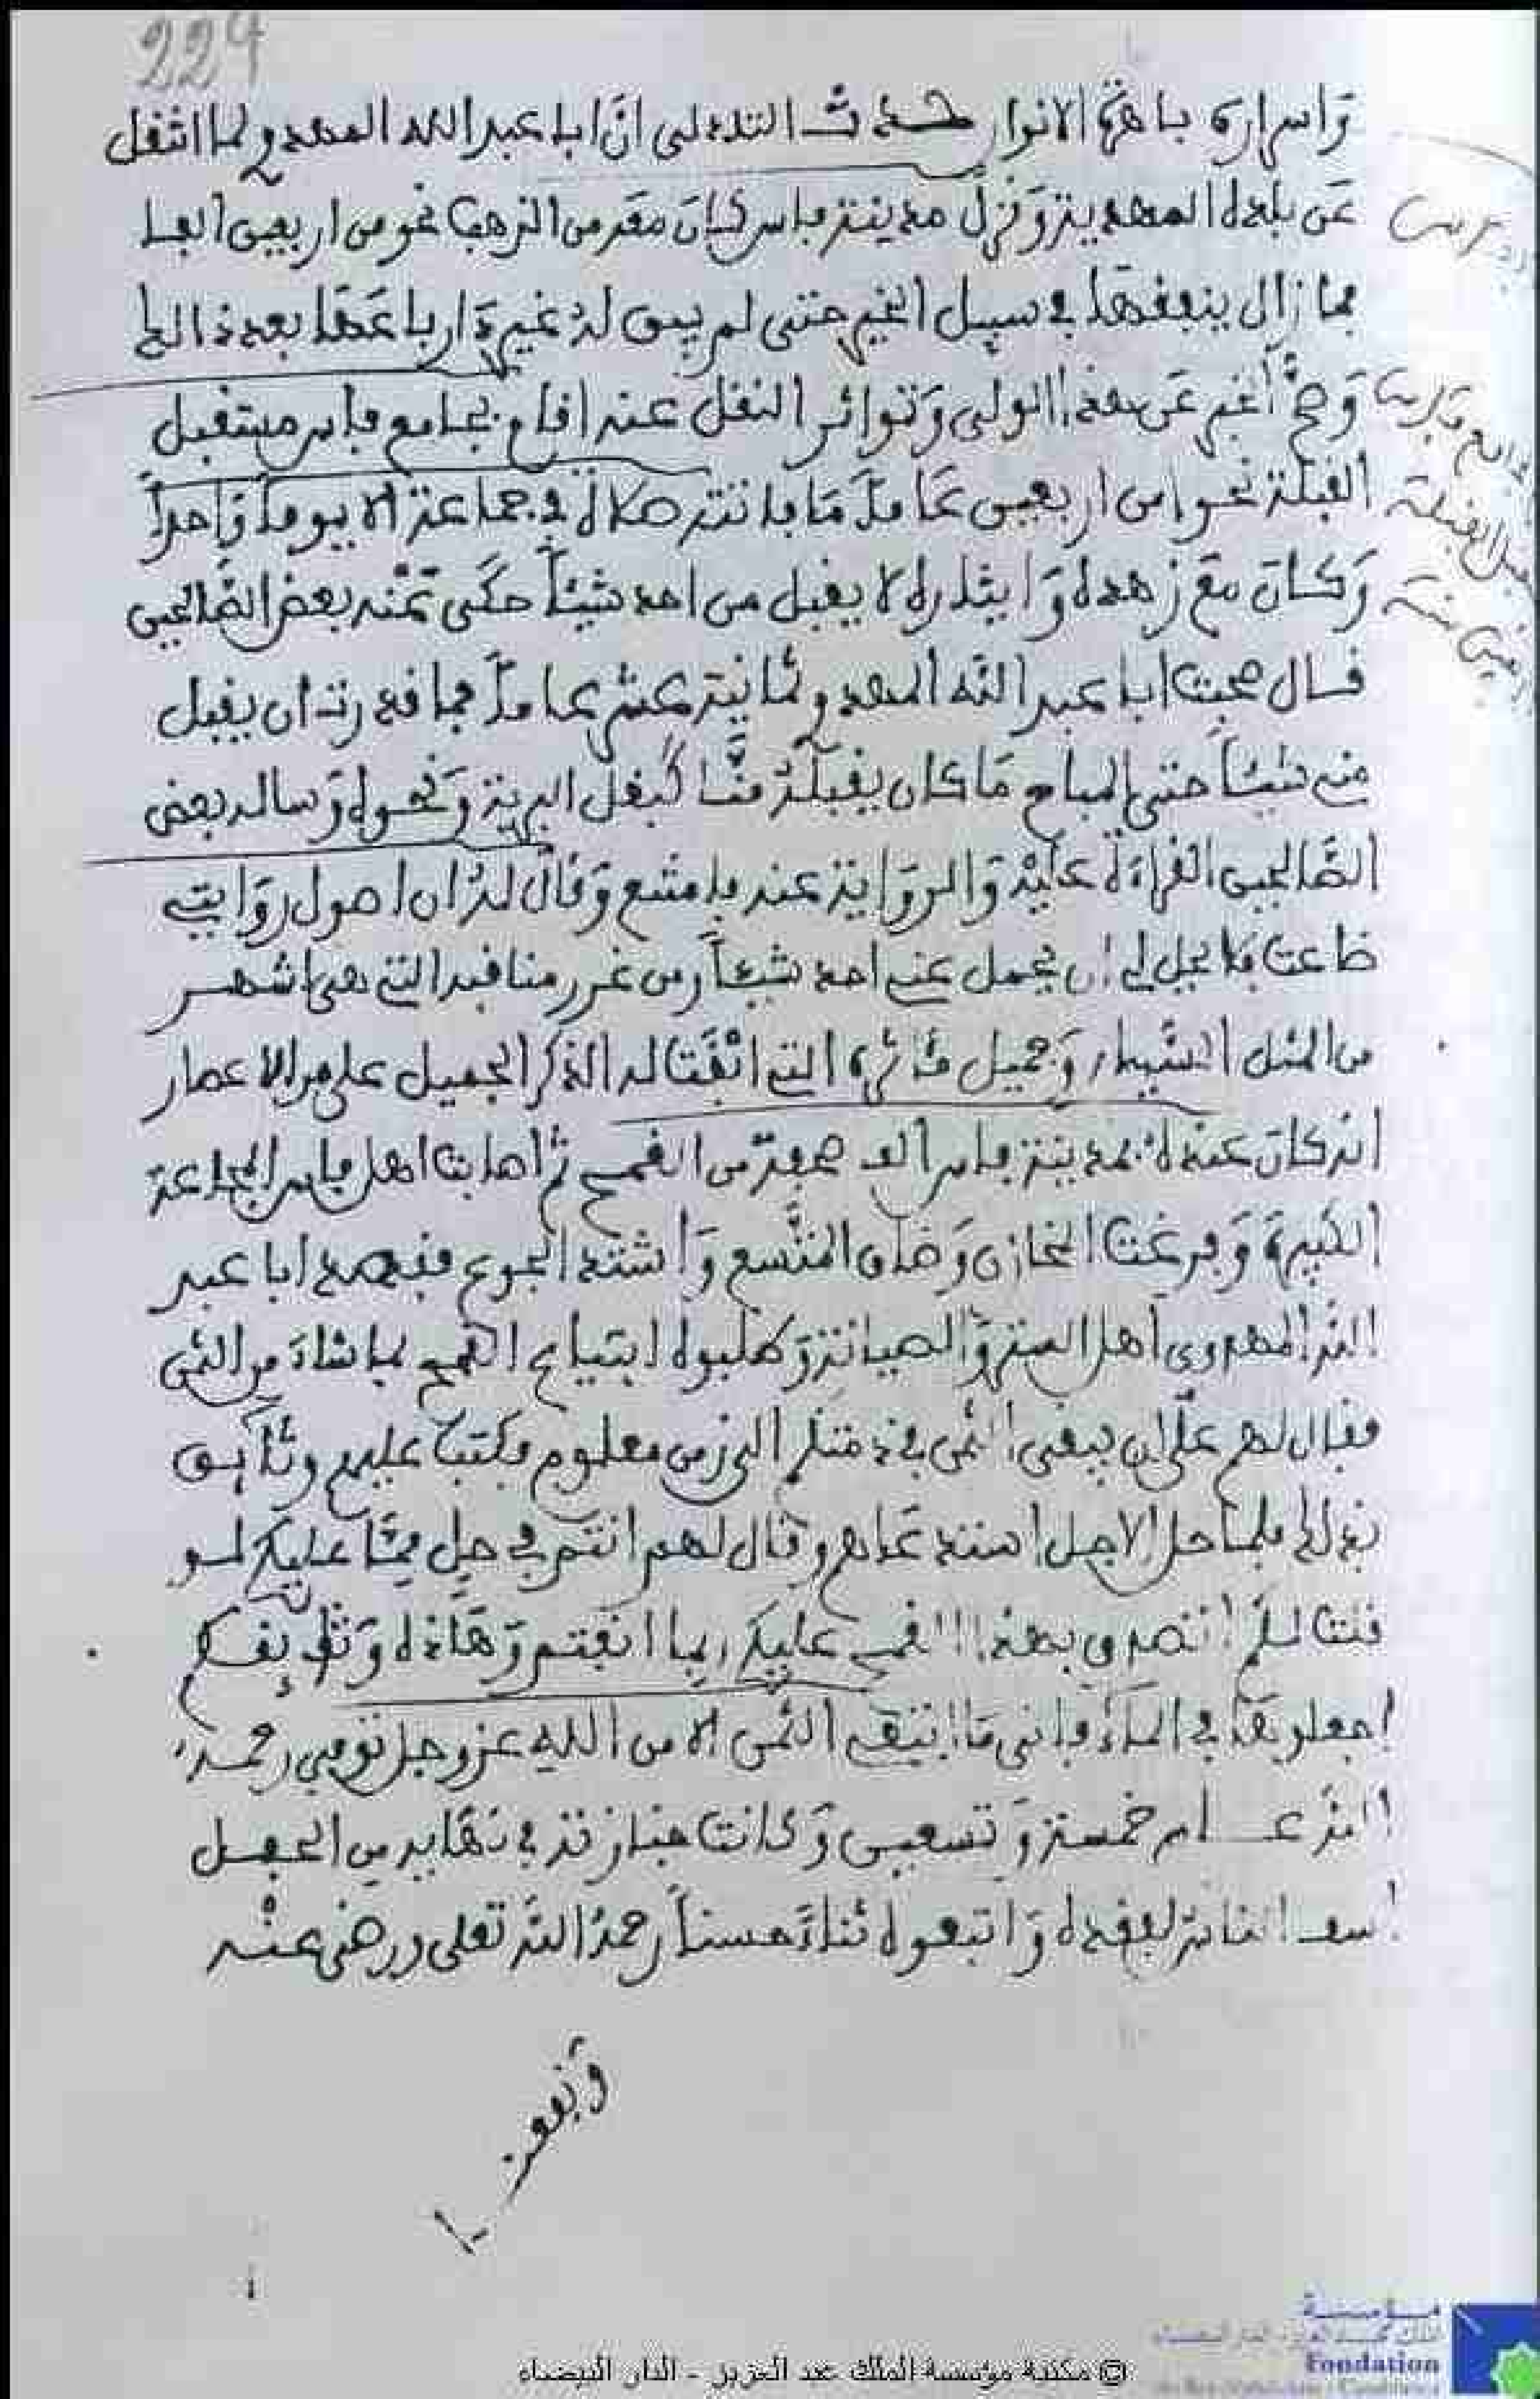 224
وَاسراره باهرة الانوار حدث التادلى انَّ ابا عبد الله المهدوي لما انتقل
عَن بلده المهدية وَنزل مدينة فاس كانَ معه من الذهب نحو من اربعين الفا
فما زال ينفقها في سبيل الخير حتى لم يبق له غير دار باعَهَا بعد ذالك
وَصحَّ الخبر عَن هذا الولى وَتواتر النقل عنه اقام بجامع فاس مستقبل
القبلة نحوا من اربعين عَاماً مَا فاتته صلاة في جماعة الا يوماً وَاحداً
وَكانَ مَع زهده وَايثاره لا يقبل من احد شيئاً حكَى عَنْه بعض الصَّالحين
قال صحبت ابا عبد الله المهدوي ثمانية عشر عاماً فما قدرت ان يقبل
منى شيئاً حتى المباح مَا كان يقبله منَّا كبقل البرية وَنحوه وَساله بعض
الصَّالحين القراءة عَليْه وَالروَاية عنه فامتنع وَقالَ له ان اصول روَايتي
ضاعت فلا يحل لي ان يحمل عنى احد شيئاً ومن غرر مناقبه التي هى اشهر
من المثل السَّيار وَجميل مآثره التي ابْقَت له الذكر الجميل على مر الاعصار
انه كان عنده بمدينة فاس الف صحفة من القمح ثم اصابت اهل فاس المجاعة
الكَبيرة وَفرغَت المخازن وَضاق المتَّسع وَاشتد الجوع فقصد ابا عبد
الله المهدوي اهل الستر وَالصيانة وَطلبوه ابتياع القمح بما شاءَ من الثمن
فقال لهم علَى ان يبقى الثمن في ذمتكم الى زمن معلوم فكتب عليهم وثآيق
بذلك فلما حل الاجل استدعَاهم وقال لهم انتم في حل ممَّا عليكم لو
قلت لكم انتصدق بهذا القمح عليكم ما انفتم وَهَاذه وَثايقكم
اجعلوهَا في الماء فانى مَا ابتغي الثمن الا من الله عز وجل توفي رحمه
الله عام خمسة وَتسعين وَكانت جنازته في نهَاية من الحفل
اسف الناس لفقده وَاتبعوه ثناءً حسناً رحمهُ الله تعلى ورضى عنه
وَنفعنا
© مكتبة مؤسسة الملك عبد العزيز - الدار البيضاء
مؤسسة
Fondation